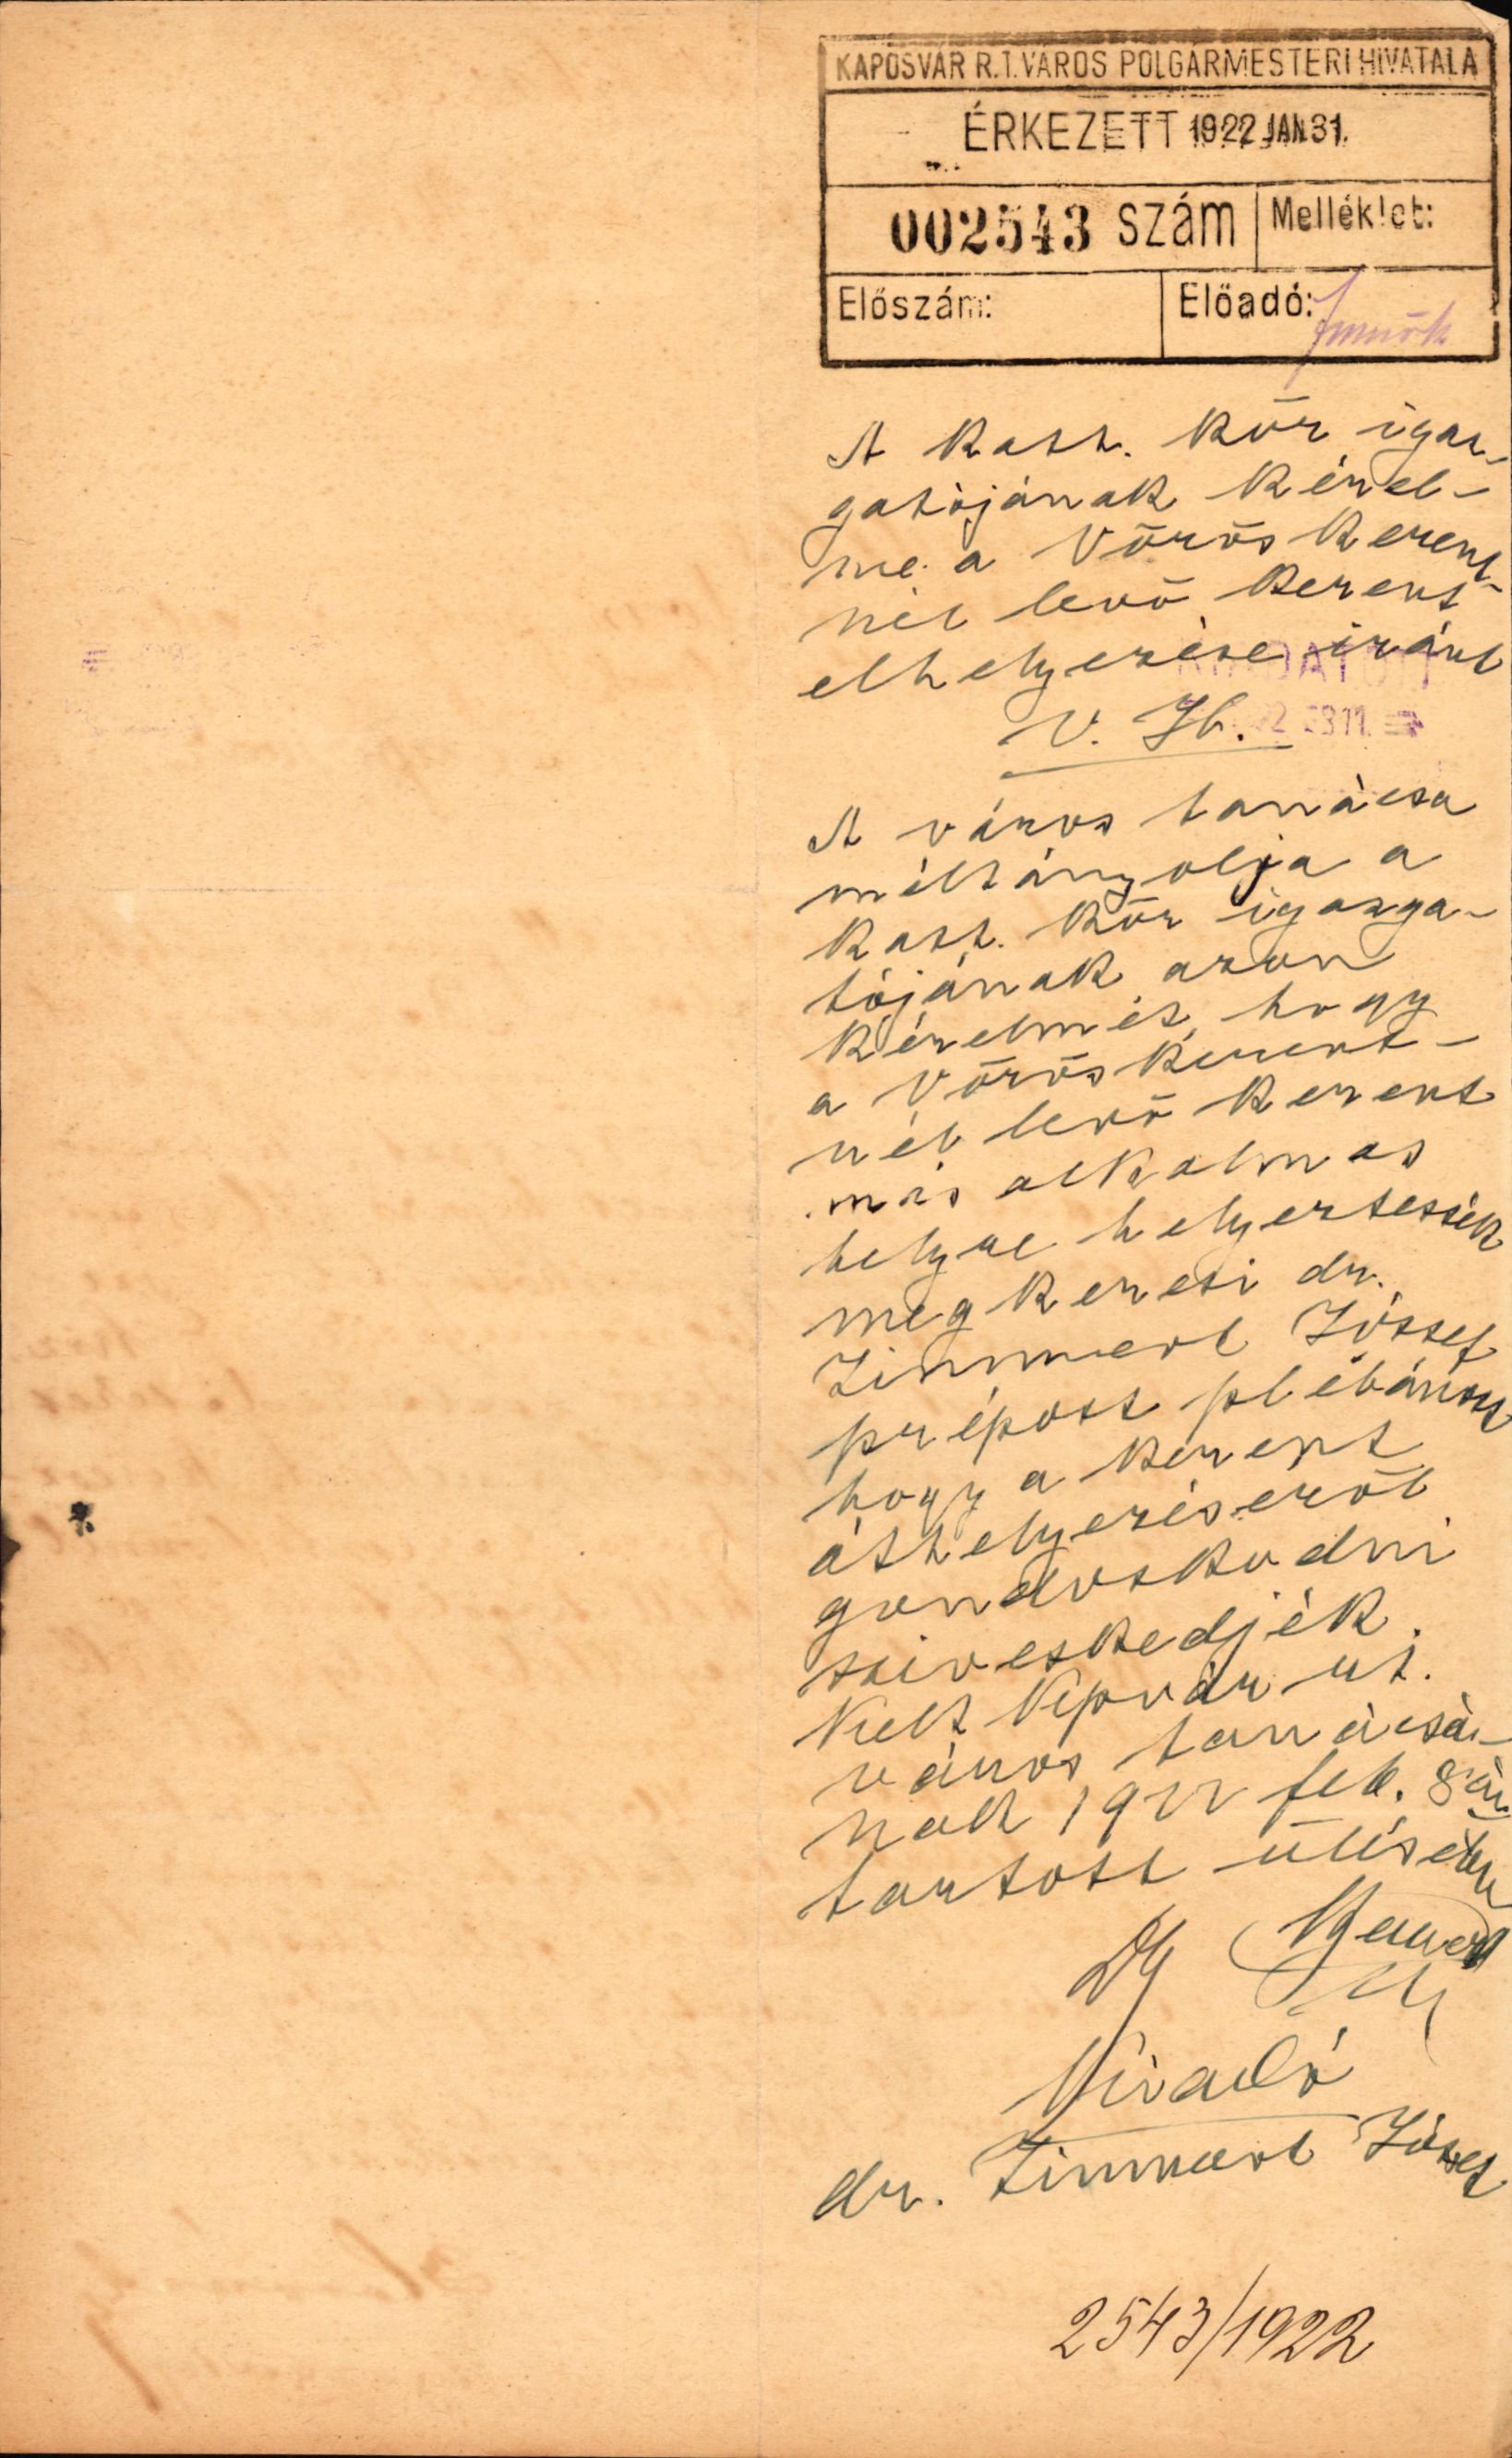 KAPOSVÁR R.T. VÁROS POLGÁRMESTERI HIVATALA
ÉRKEZETT 1922 JAN 31.
002543 szám Melléklet:
Előszám: Előadó:
A kath. kör igaz-
gatójának kérel-
me a Vörös kereszt-
nél levő kereszt
elhelyezése iránt
V. Ih.
A város tanácsa
méltányolja a
kath. kör igazga-
tójának azon
kérelmét, hogy
a Vörös kereszt-
nél levő kereszt
más alkalmas
helyre helyeztessék
megkeresi dr.
Zimmert József
prépost plébánost
hogy a kereszt
áthelyezéséről
gondoskodni
sziveskedjék.
Kelt Kpvár rt.
város tanácsá-
nak 1922 feb. 8 án
tartott ülésében
Véradó
dr. Zimmert József
2543/1922